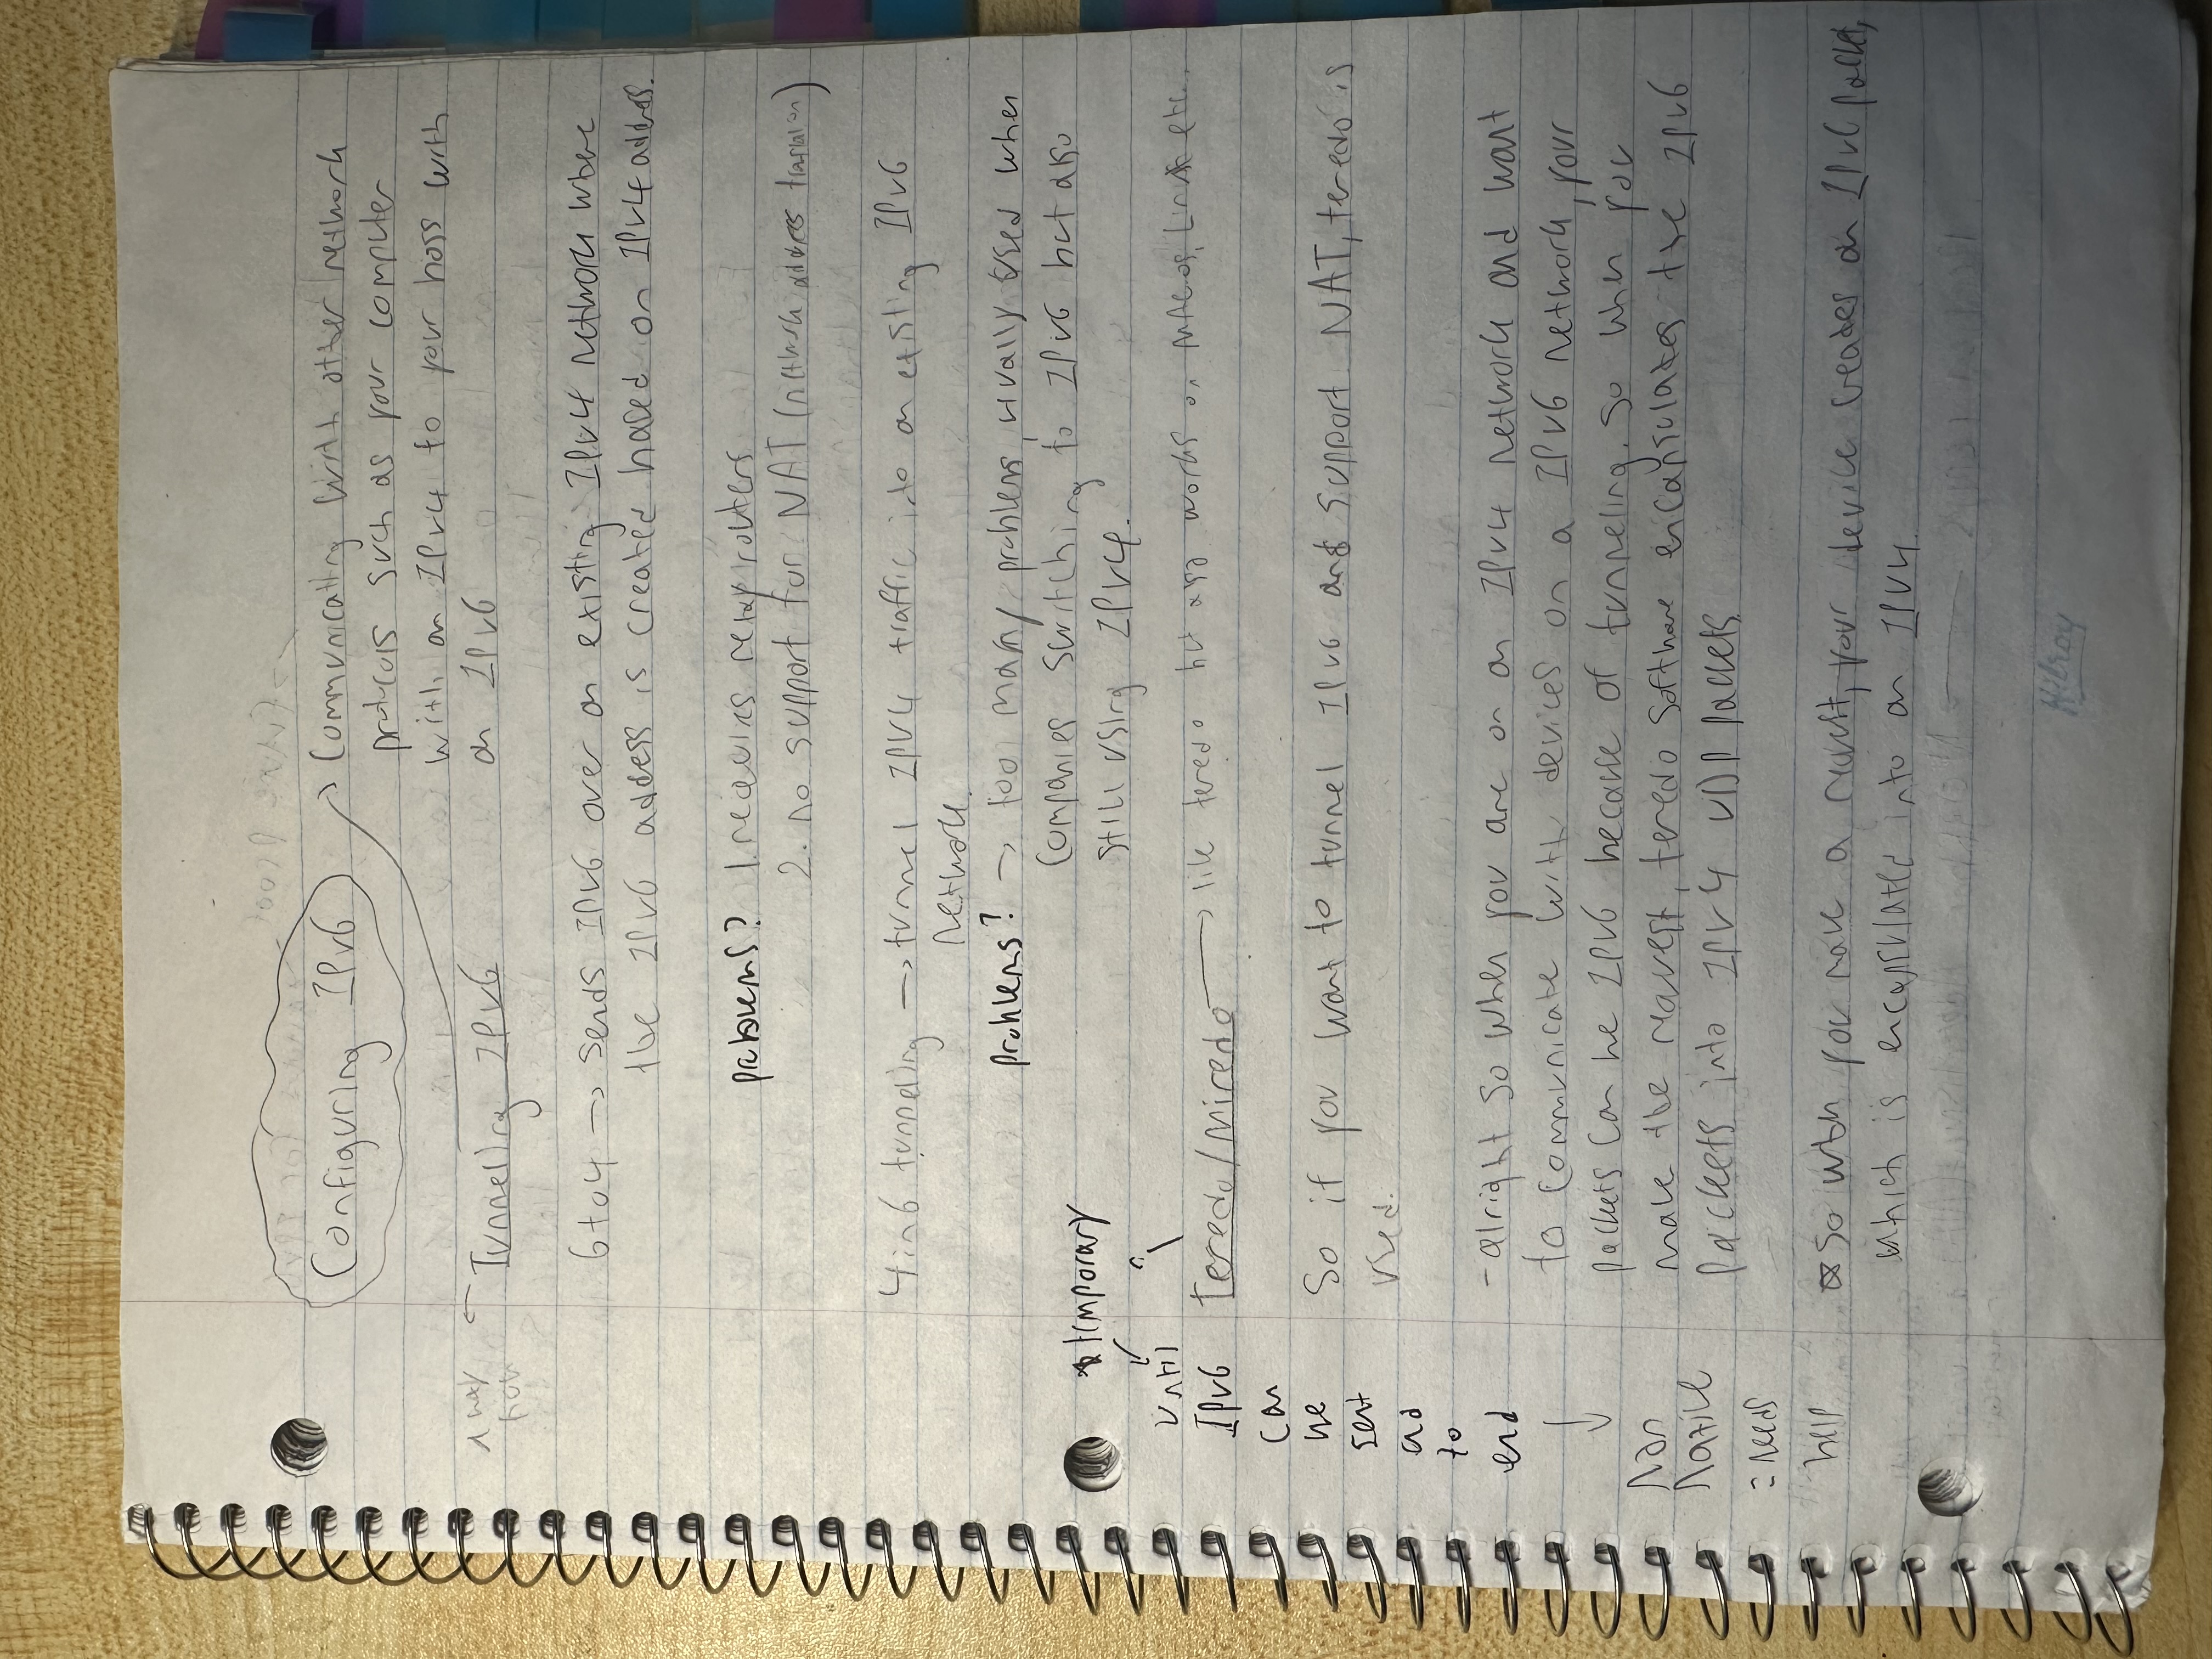 Configuring IPv6
Communicating with other network
protocols such as your computer
with an IPv4 to your boss with
an IPv6
1 way
Tunneling IPv6
6to4 → sends IPv6 over an existing IPv4 network where
the IPv6 address is created based on IPv4 address.
problems? 1. requires relay routers
2. no support for NAT (network address translation)
4in6 tunneling → tunnel IPv4 traffic into an existing IPv6
network.
problems? → too many problems, usually used when
companies switching to IPv6 but also
still using IPv4.
*temporary
until
IPv6
can
be
sent
ad
to
end
Non
Native
= needs
help
Teredo/Miredo → like teredo but also works on MACos, Linux etc..
So if you want to tunnel IPv6 and support NAT, teredo is
used.
- alright so when you are on an IPv4 network and want
to communicate with devices on a IPv6 network, your
packets can be IPv6 because of tunneling. So when you
make the request, teredo software encapsulates the IPv6
packets into IPv4 UDP packets
*So when you make a request, your device creates an IPv6 packet,
which is encapsulated into an IPv4.
Hilroy